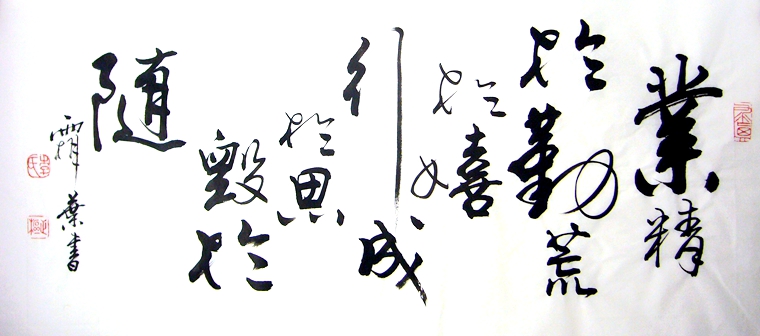 業精
於勤荒
於嬉
行成
於思
毀於
隨
霜葉書